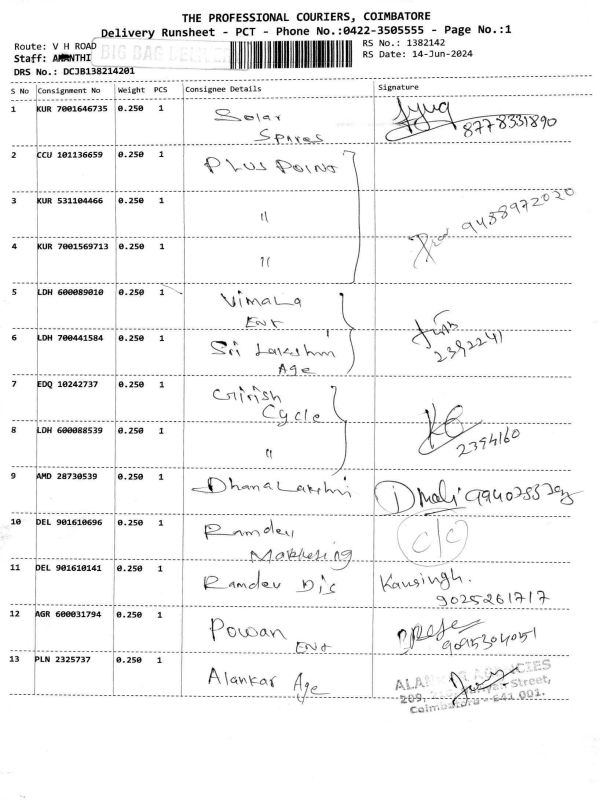 THE PROFESSIONAL COURIERS, COIMBATORE
Delivery Runsheet - PCT - Phone No.:0422-3505555 - Page No.:1
Route: V H ROAD
RS No.: 1382142
Staff:
BIG BAG
RS Date: 14-Jun-2024
DRS No.: DCJB138214201
S No Consignment No Weight PCS Consignee Details Signature
1 KUR 7001646735 0.250 1 Solar
Spares
8778331890
2 CCU 101136659 0.250 1 PLUS POINT
3 KUR 531104466 0.250 1 "
9458972020
4 KUR 7001569713 0.250 1 "
5 LDH 600089010 0.250 1 Vimala
Ent
6 LDH 700441584 0.250 1 Sri Lakshmi
Age
2392241
7 EDQ 10242737 0.250 1 Girish
Cycle
8 LDH 600088539 0.250 1 "
2394160
9 AMD 28730539 0.250 1 Dhanalakshmi
10 DEL 901610696 0.250 1 Ramdev
Marketing
c/c
11 DEL 901610141 0.250 1 Ramdev Dis Kausingh.
9025261717
12 AGR 600031794 0.250 1 Powan
Ent
9095304051
13 PLN 2325737 0.250 1 Alankar Age
Street,
Coimbatore - 641 001.